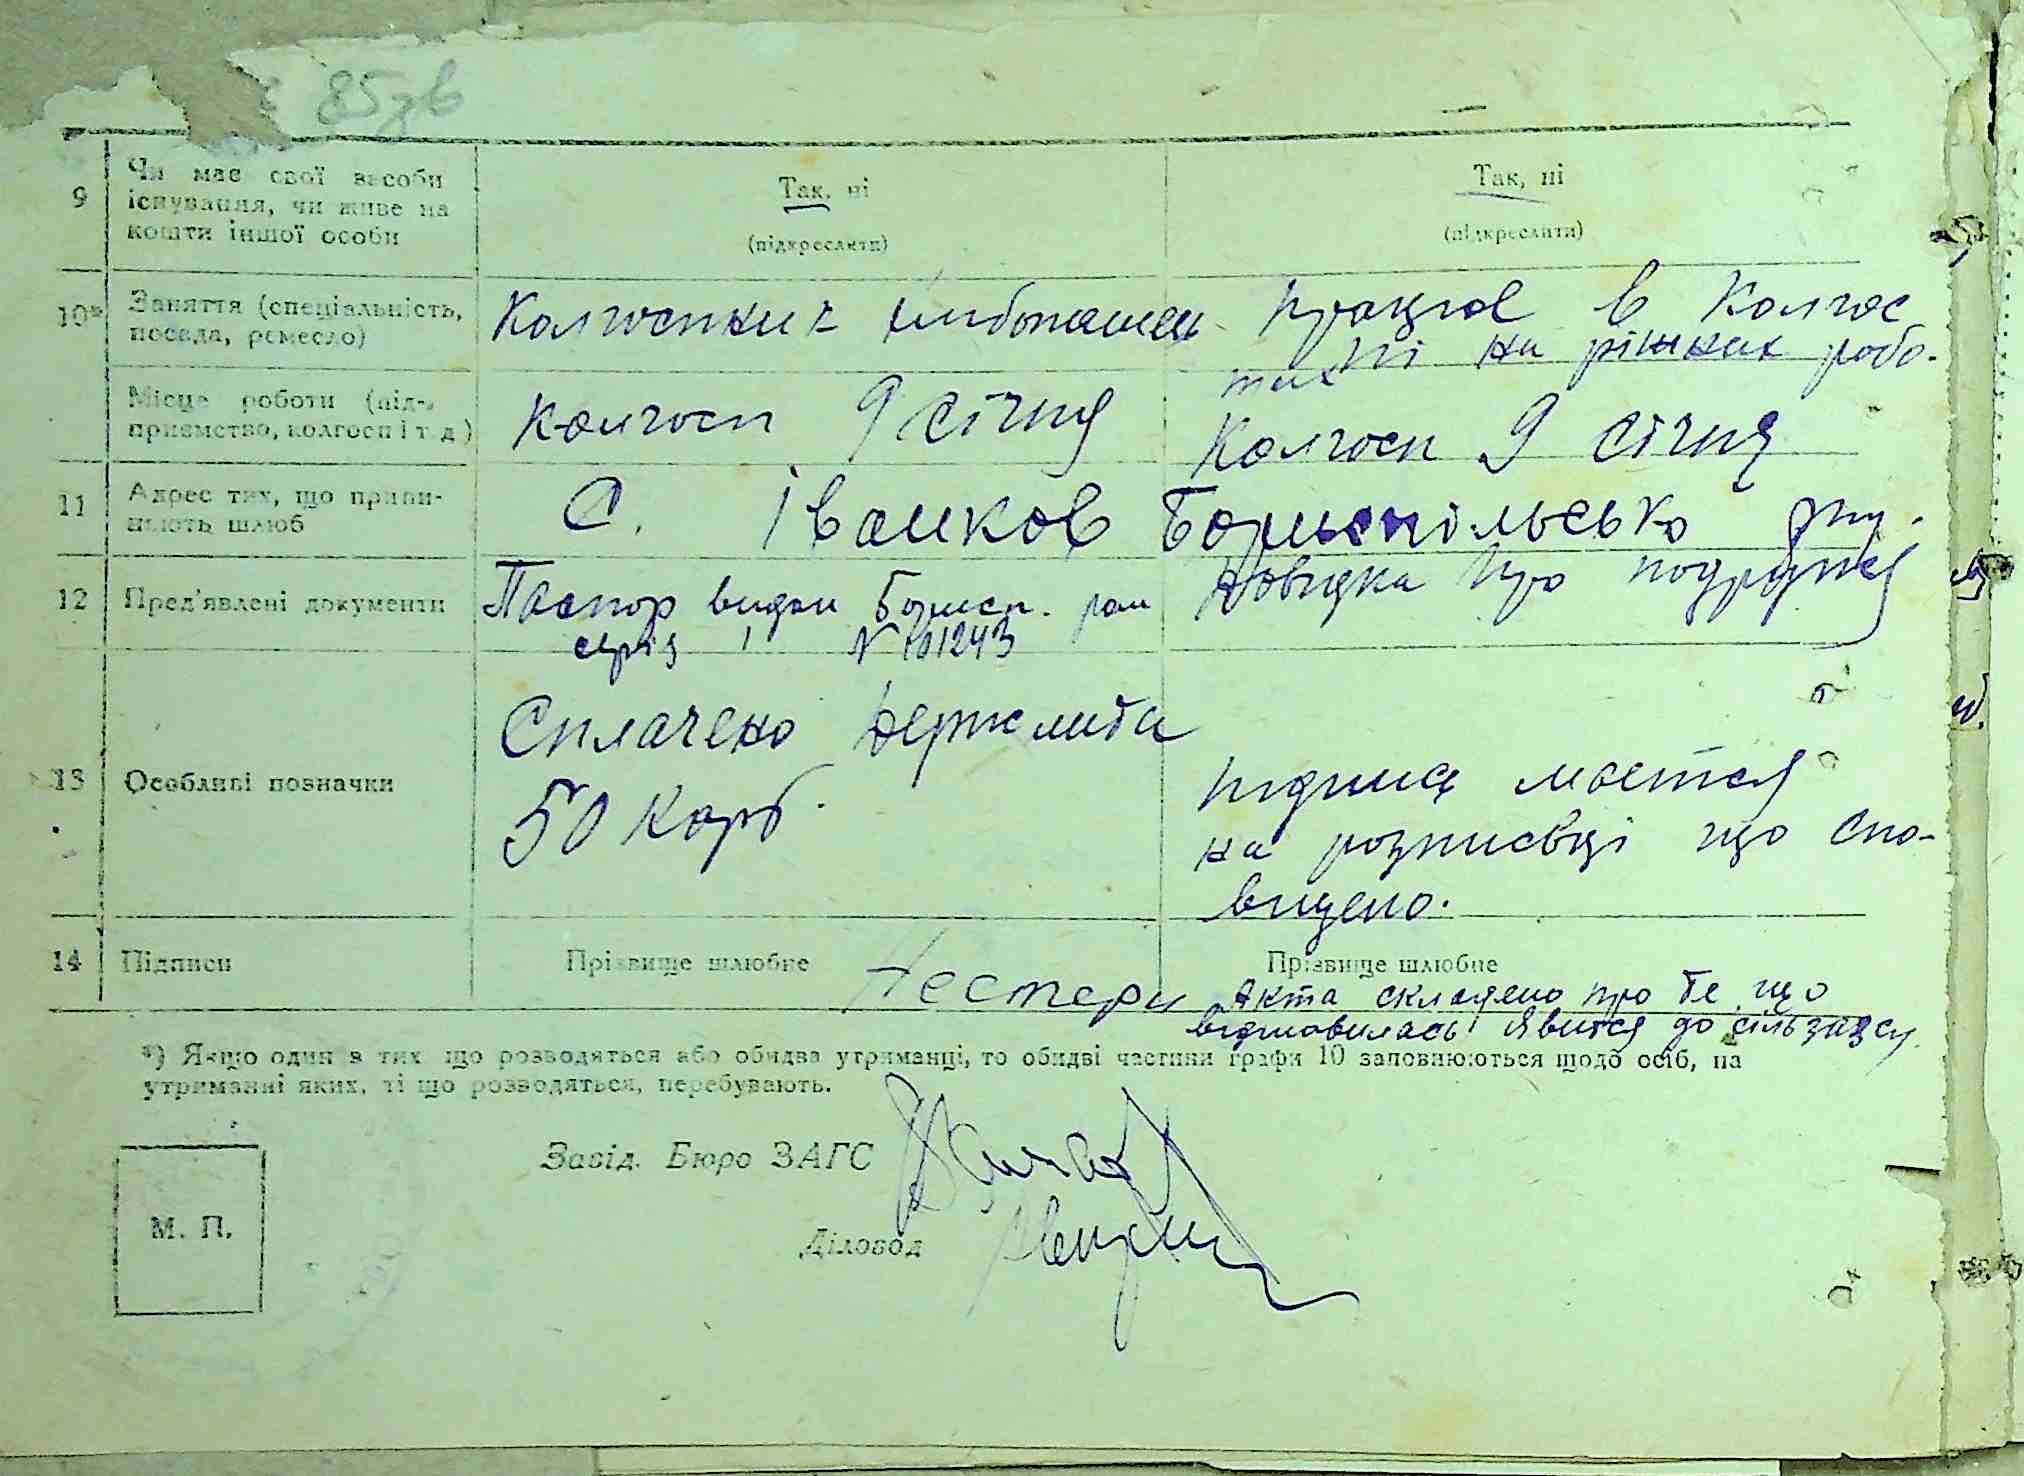 85зв
9 Чи має свої засоби існування, чи живе на кошти іншої особи
Так, ні
(підкреслити)
Так, ні
(підкреслити)
10* Заняття (спеціальність, посада, ремесло)
Колгоспник хлібопашець
працює в Колгос
пі на ріжних робо-
тах
Місце роботи (підприємство, колгосп і т. д.)
Колгосп 9 січня
Колгосп 9 січня
11 Адрес тих, що припиняють шлюб
С. Іванков Бориспільсько
12 Пред'явлені документи
Паспор видан Борисп. рам
серія 1 № 101243
Довідка про
13 Особливі позначки
Сплачено Держмита
50 карб.
підпис мається
на розписвці що спо-
віщено.
14 Підписи
Прізвище шлюбне
Нестери
Прізвище шлюбне
Акта складено про те що
відмовилась явится до сільзагсу.
*) Якщо один з тих що розводяться або обидва утриманці, то обидві частини графи 10 заповнюються щодо осіб, на
утриманні яких, ті що розводяться, перебувають.
Завід. Бюро ЗАГС
Діловод
М. П.